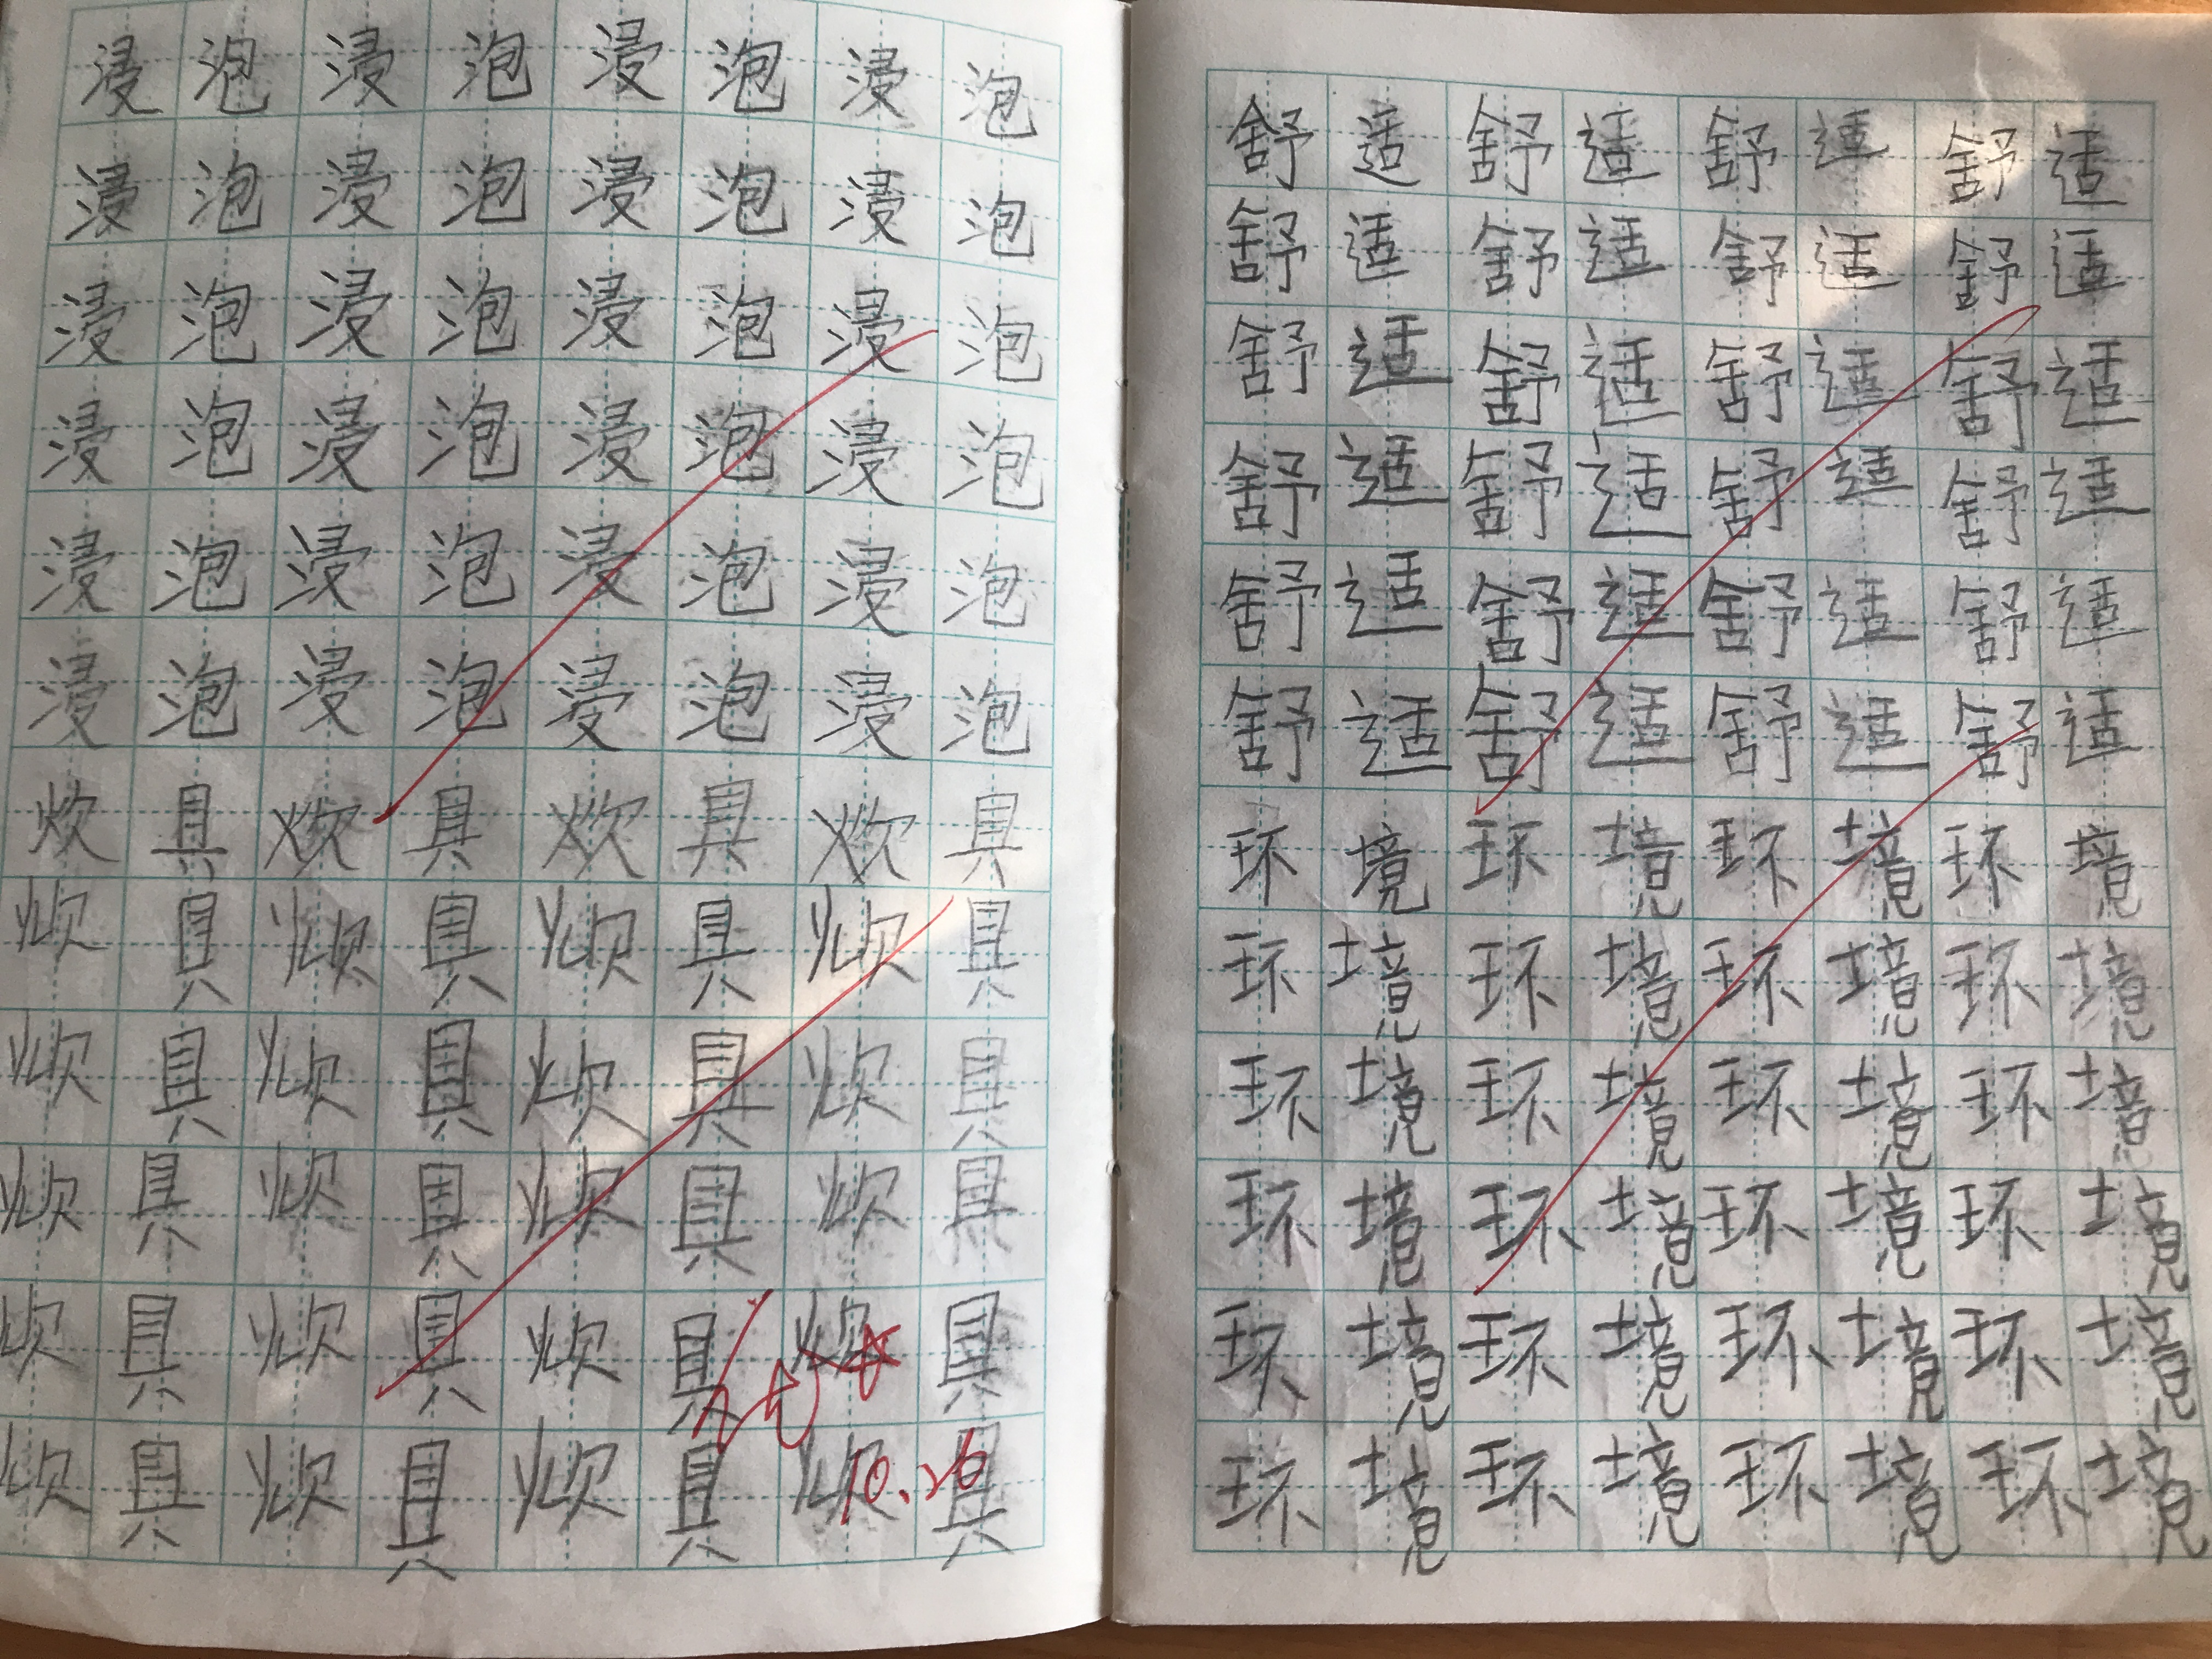 浸泡浸泡浸泡浸泡
浸泡浸泡浸泡浸泡
浸泡浸泡浸泡浸泡
浸泡浸泡浸泡浸泡
浸泡浸泡浸泡浸泡
浸泡浸泡浸泡浸泡
炊具炊具炊具炊具
炊具炊具炊具炊具
炊具炊具炊具炊具
炊具炊具炊具炊具
炊具炊具炊具炊具
炊具炊具炊具炊具
10.26
舒适舒适舒适舒适
舒适舒适舒适舒适
舒适舒适舒适舒适
舒适舒适舒适舒适
舒适舒适舒适舒适
舒适舒适舒适舒适
环境环境环境环境
环境环境环境环境
环境环境环境环境
环境环境环境环境
环境环境环境环境
环境环境环境环境